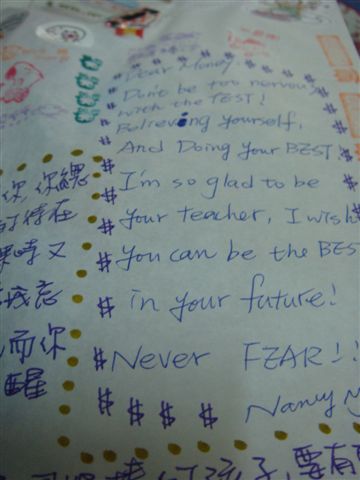 Dear Money,
Don't be too nervous
with the TEST!
Believing yourself,
And Doing Your BEST,
I'm so glad to be
your teacher, I wish
you can be the BES
in your future!
Never FEAR!!
Nancy
你,你總
時又
忘
而你
醒
孩子,要有